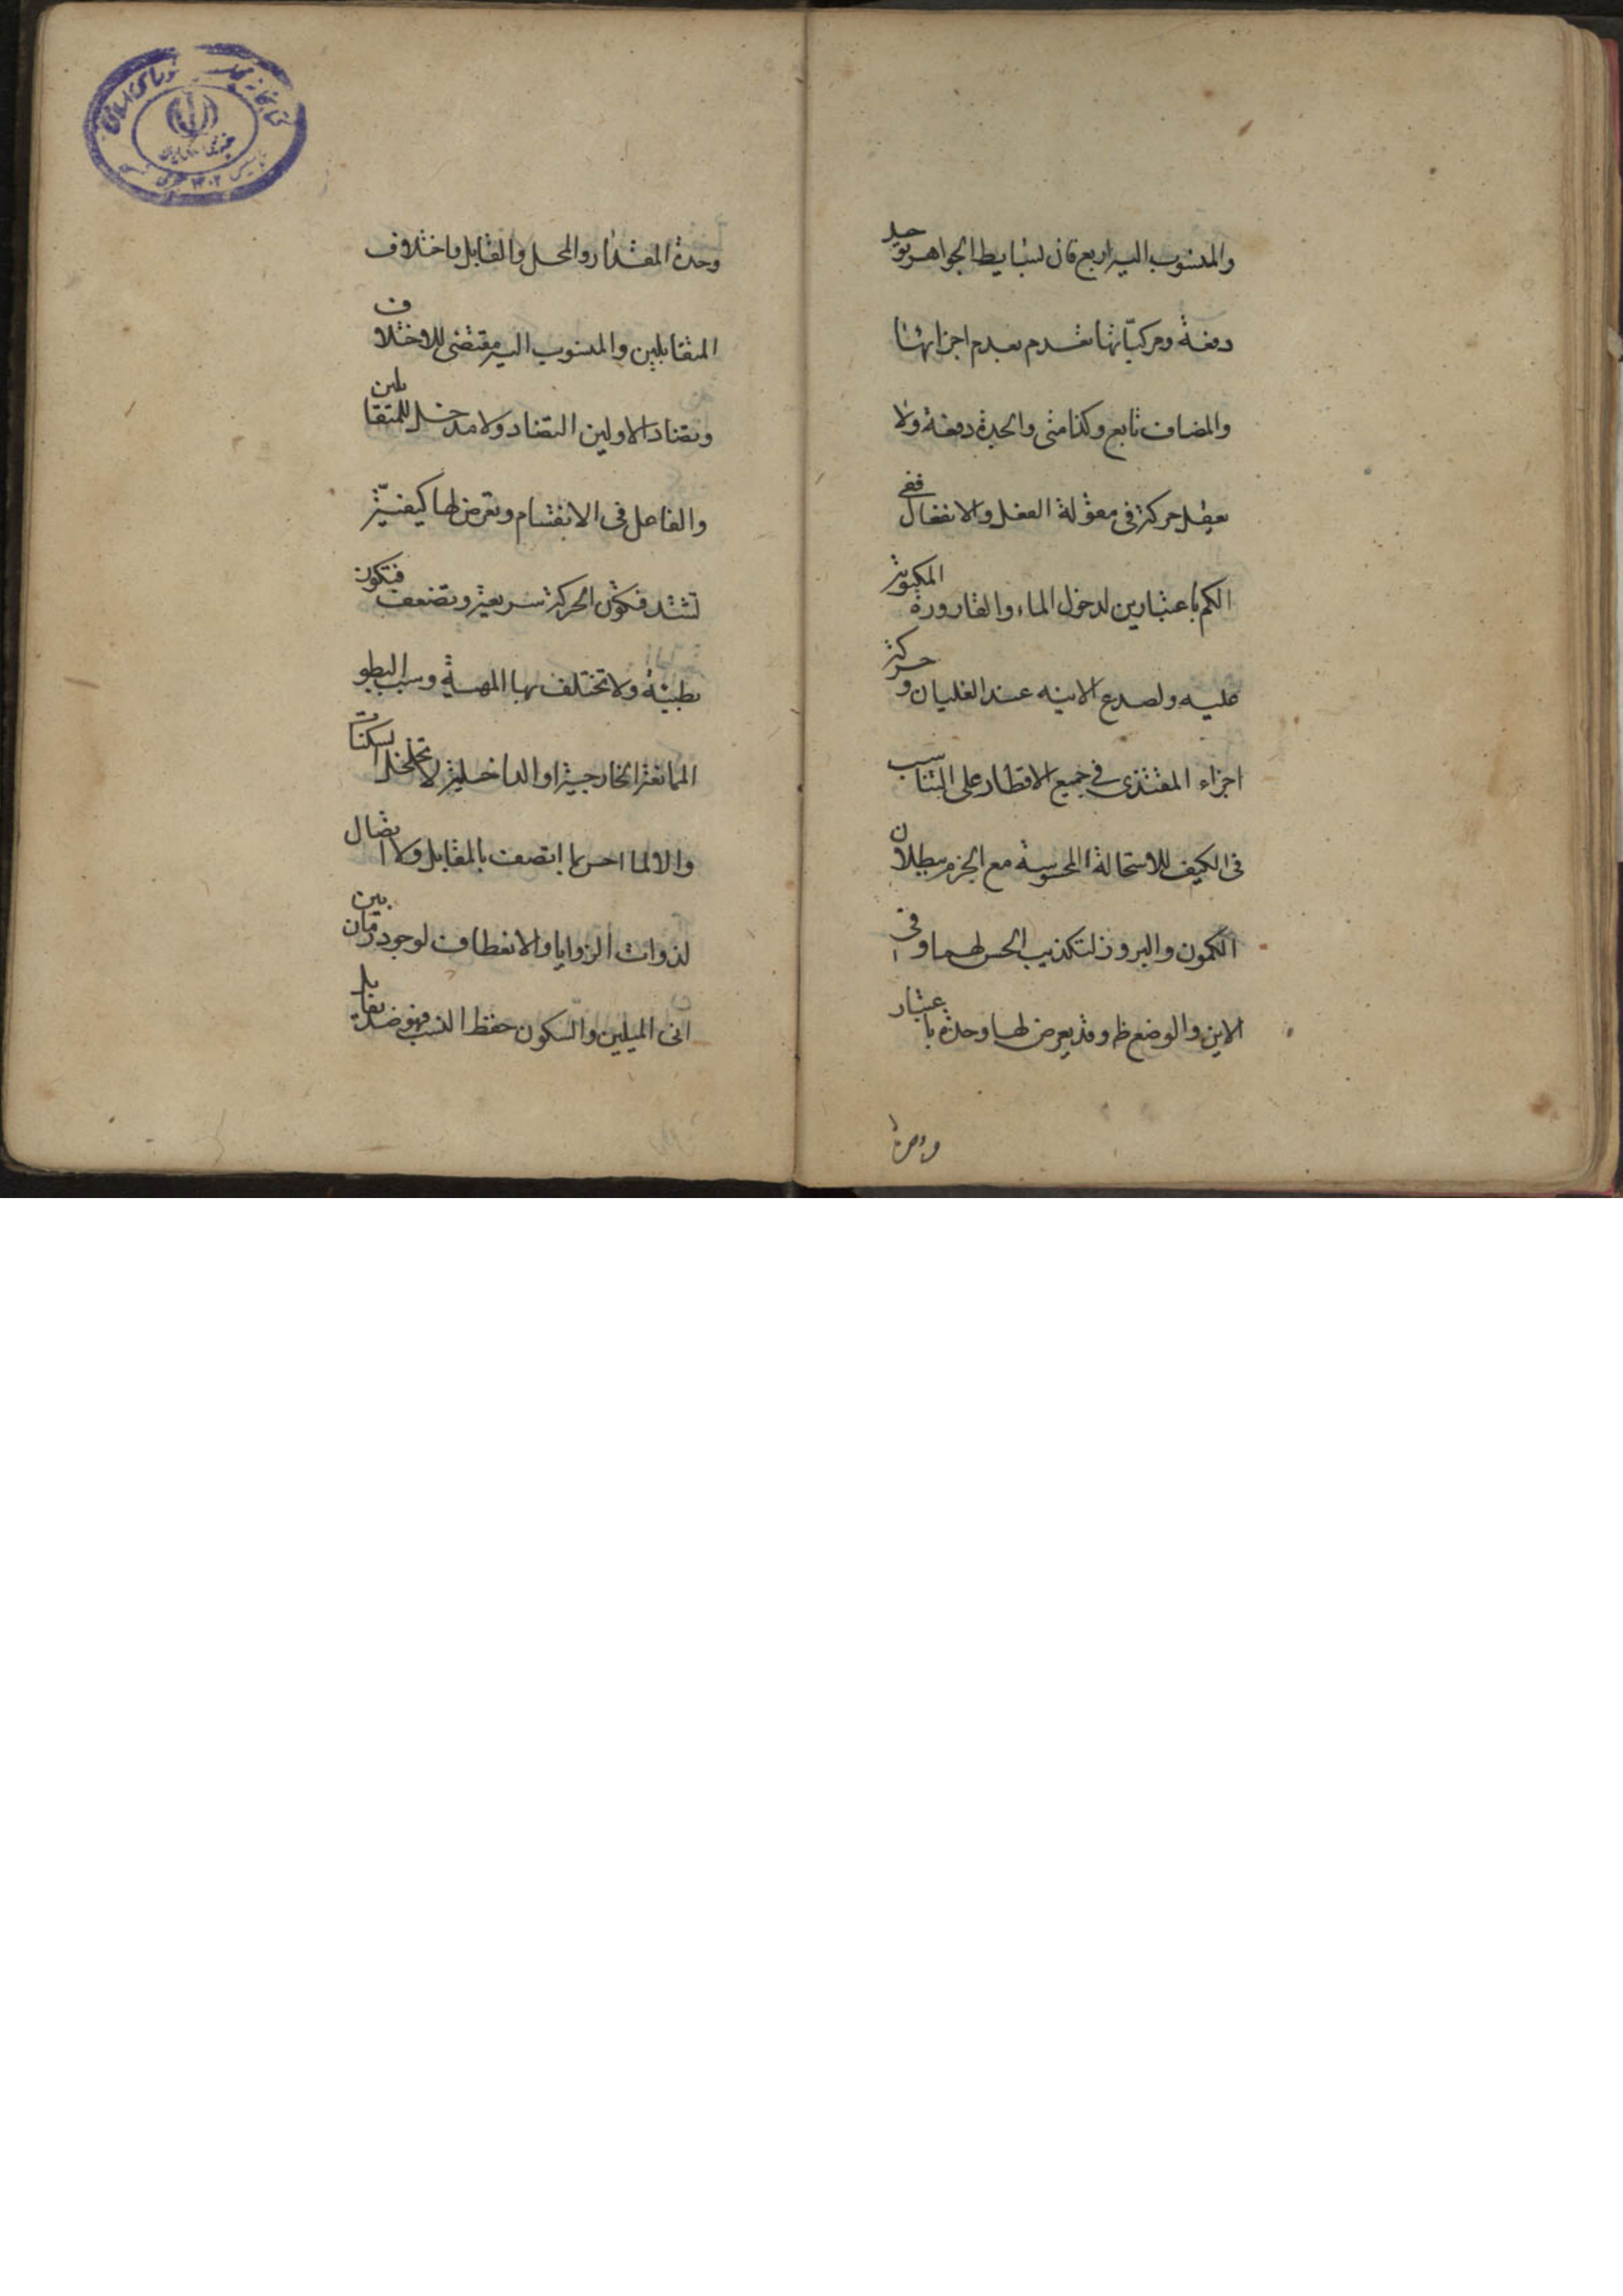 والمنسوب اليه اربع فان بسايط الجواهر توجد
دفعة ومركباتها تعدم بعدم اجزائها
والمضاف تابع وكذا متى والجدة دفعة ولا
يعقل حركة فى مقولة الفعل والانفعال ففى
الكم باعتبارين لدخول الماء القارورة المكبوبة
عليه ولصدع الانيه عند الغليان وحركة
اجزاء المغتذى في جميع الاقطار على التناسب
فى الكيف للاستحالة المحسوسة مع الجزم ببطلان
الكمون والبروز لتكذيب الحس لهما وفى
الاين والوضع ظ وقد يعرض لها وحدة باعتبار
وحدة المقدار والمحل والقابل واختلاف
المتقابلين والمنسوب اليه مقتضى للاختلاف
وتضاد الاولين التضاد ولا مدخل للمتقابلين
والفاعل فى الانقسام وتعرض لها كيفية
تشتد فتكون الحركة سريعة وتضعف فتكون
بطيئة ولا تختلف بها المهية وسبب البطو
الممانعة الخارجية او الداخلية لا تخلخل السكنات
والا لما احس بما اتصف بالمقابل ولا اتصال
لذوات الزوايا والانعطاف لوجود زمان بين
انى الميلين والسكون حفظ النسب فهو ضد يقابل